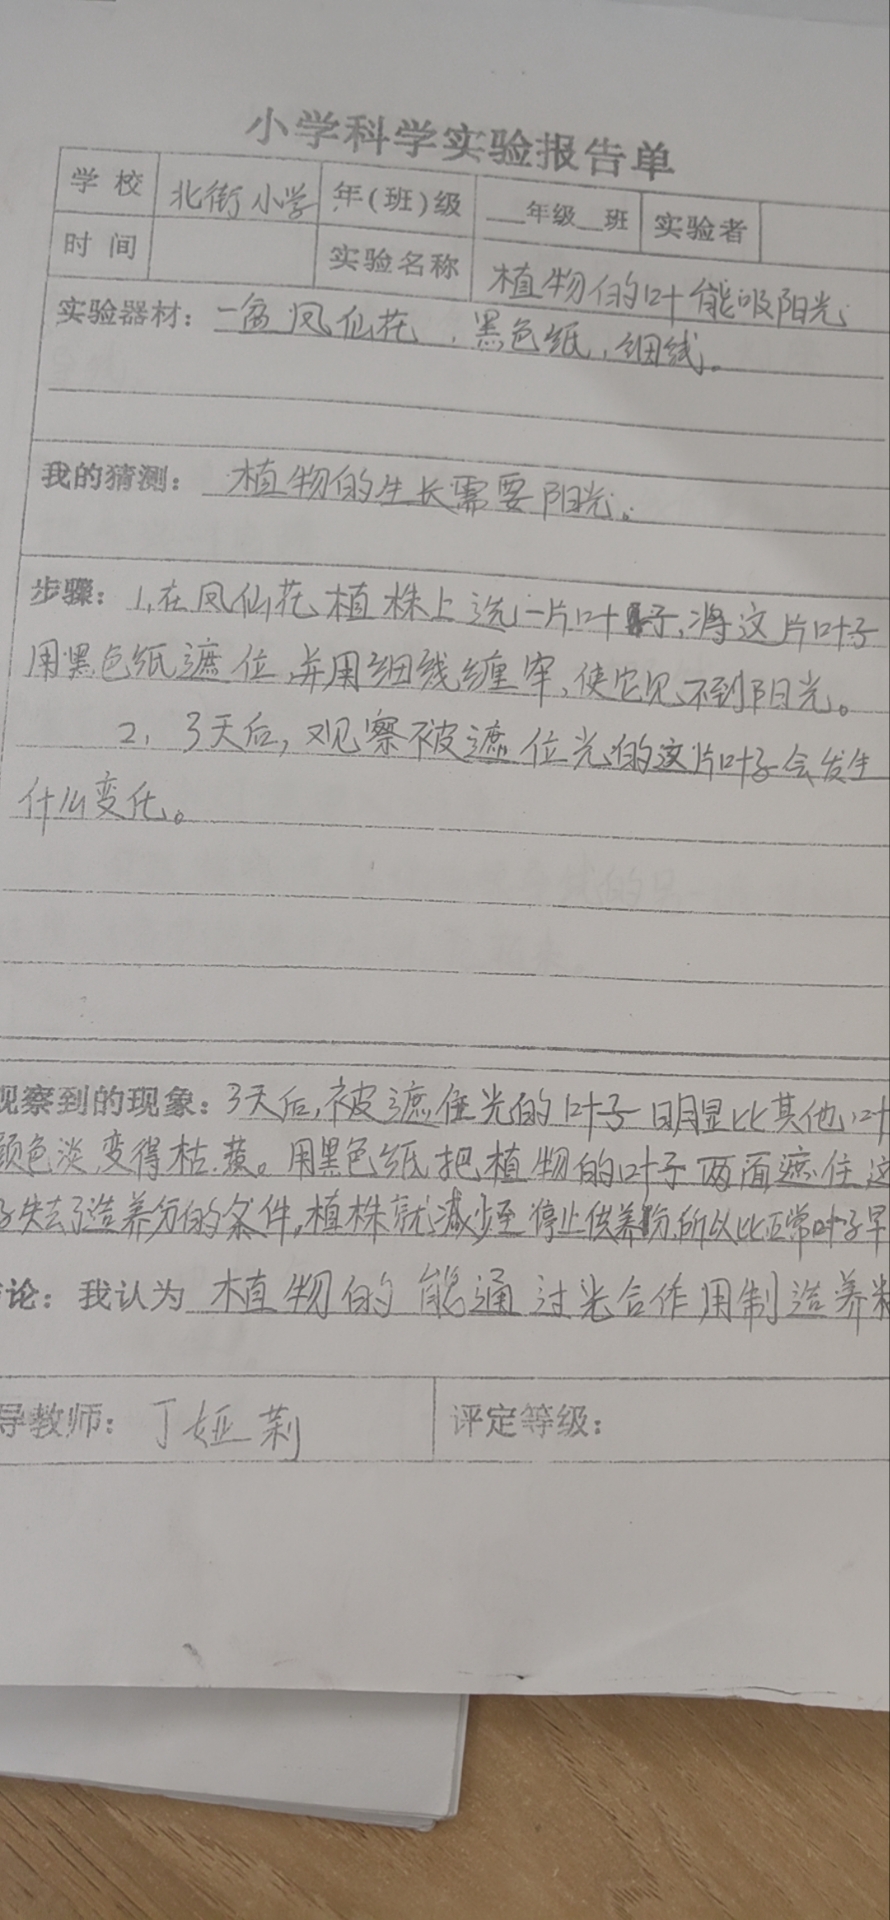 小学科学实验报告单
学校 北街小学 年(班)级 __年级__班 实验者
时间 实验名称 植物的叶能吸阳光
实验器材：一盆凤仙花，黑色纸，细线。
我的猜测：植物的生长需要阳光。
步骤：1,在凤仙花植株上选一片叶子,将这片叶子
用黑色纸遮位,并用细线缠牢,使它见不到阳光。
2, 3天后,观察被遮位光的这片叶子会发生
什么变化。
观察到的现象：3天后,被遮住光的叶子明显比其他叶
颜色淡,变得枯黄。用黑色纸把植物的叶子两面遮住,这
子失去了造养分的条件,植株就减少至停止供养份,所以比正常叶子早
论：我认为 植物的能通过光合作用制造养料
导教师：丁娅莉 评定等级：